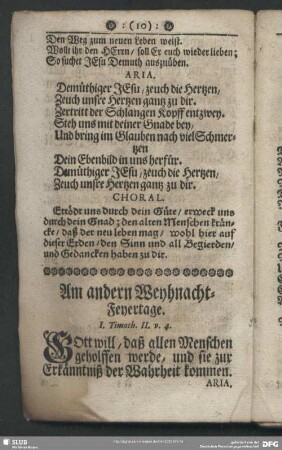 :(10):
Den Weg zum neuen Leben weist.
Wollt ihr den HErrn / soll Er euch wieder lieben;
So suchet JEsu Demuth auszuüben.
ARIA.
Demüthiger JEsu / zeuch die Hertzen,
Zeuch unser Hertzen gantz zu dir.
Zertritt der Schlangen Kopff entzwey.
Steh uns mit deiner Gnade bey,
Und bring im Glauben nach viel Schmer-
tzen
Dein Ebenbild in uns herfür.
Demüthiger JEsu / zeuch die Hertzen,
Zeuch unser Hertzen gantz zu dir.
CHORAL.
Ertödt uns durch dein Güte / erweck uns
durch dein Gnad; den alten Menschen krän-
cke / daß der neu leben mag / wohl hier auf
dieser Erden / den Sinn und all Begierden /
und Gedancken haben zu dir.
Am andern Weyhnacht-
Feyertage.
I. Timoth. II. v. 4.
GOtt will / daß allen Menschen
geholffen werde, und sie zur
Erkänntniß der Wahrheit kommen.
ARIA.
SLUB
DFG